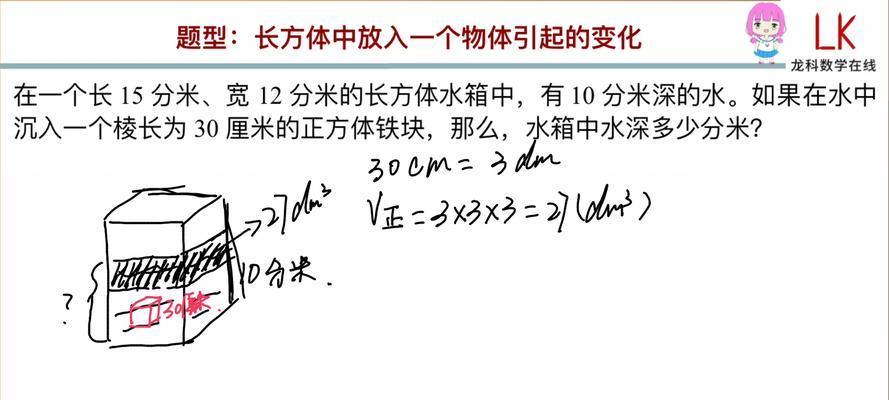 题型：长方体中放入一个物体引起的变化
LK
龙科数学在线
在一个长 15 分米、宽 12 分米的长方体水箱中，有 10 分米深的水。如果在水中
沉入一个棱长为 30 厘米的正方体铁块，那么，水箱中水深多少分米？
30cm = 3dm
V正 = 3×3×3 = 27(dm³)
27dm³
10分米.
?
30